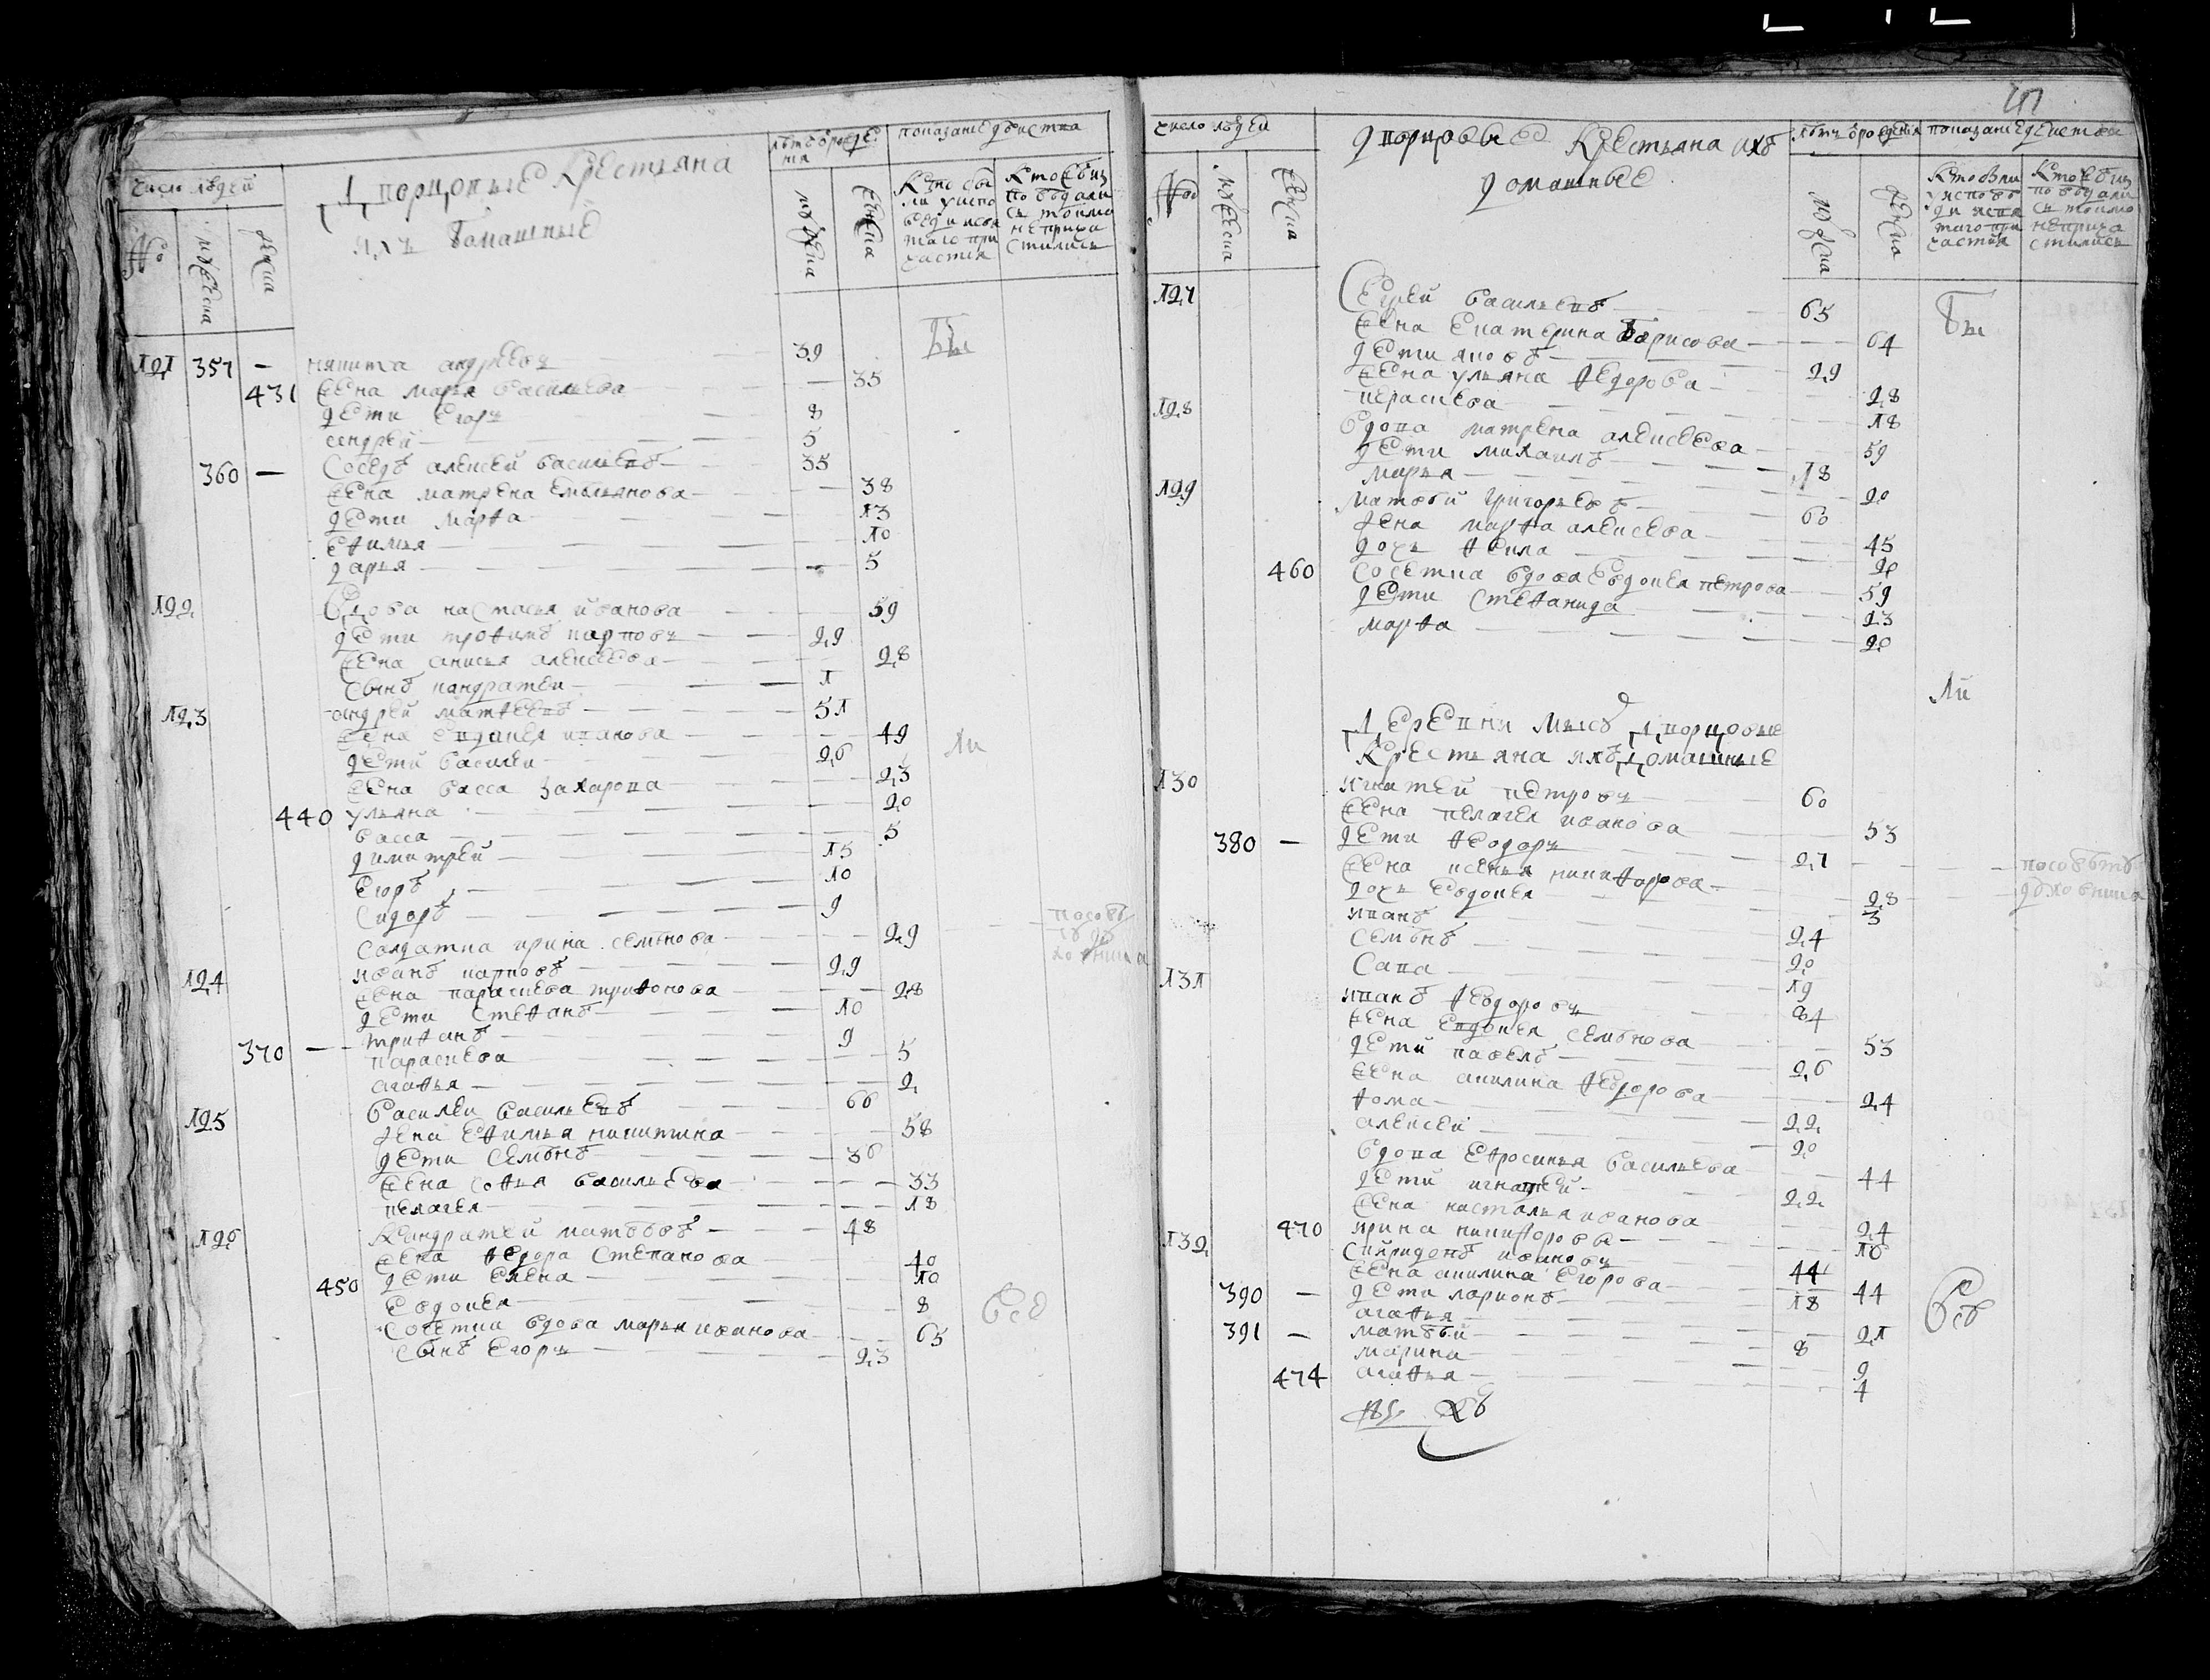 число людей
дворцовые Крестьяна
ихъ домашные
лѣтъ о рожде
ния
показание дѣиства
№
мужеска
женска
мужеска
женска
Кто бы
ли у испо
веди и свя
таго при
частия
Кто ѣ из
по вѣдали
сь токмо
не прича
стились
Бы
121 357 — никита андреевъ 39
431 жена марья васильева 35
дети егоръ 8
андрей 5
360 — Соседъ алексей васильевъ 35
жена матрена емельянова 38
дети марфа 13
ефимья 10
дарья 5
122 Вдова настасья иванова 59
дети трофимъ карповъ 29
жена анисья алексеева 28
сынъ кандратеи 1
123 андрей матфеевъ 51
жена евдокея иванова 49
дети василеи 26
жена васса захарова 23
440 ульяна 20
васса 5
димитрей 15
егоръ 10
Сидоръ 9
Салдатка ирина семѣнова 29
ли
124 иванъ карповъ 29
жена парасковa трифонова 28
дети стефанъ 10
трифанъ 9
370 — параскева 5
агафья 2
125 Василеи васильевъ 66
жена ефимья никитина 58
дети семѣнъ 36
жена софья васильева 33
пелагея 18
126 Кандратей матвѣевъ 48
жена федора степанова 40
450 дети елена 10
евдокея 8
Соcетки вдова марья иванова 65
сынъ егоръ 23
Всѣ
число людей
дворцовые Крестьяна ихъ
домашные
лѣтъ о рождения
показание действа
№
мужеска
женска
мужеска
женска
Кто были
у исповѣ
ди и свя
таго при
частия
Кто ѣ из
по вѣдали
сь токмо
не прича
стились
Бы
127 Сергей васильевъ 65
жена екатерина борисова 64
дети яковъ 29
жена ульяна федорова 28
параскева 18
128 вдова матрена алексеева 59
дети михаилъ 18
марья 20
129 матвѣй григорьевъ 60
жена марфа алексеева 45
дочь фекла 20
460 Сосетка вдова евдокея петрова 59
дети стефанида 23
марфа 20
ли
деревни дворцовые
Крестьяна ихъ домашные
130 игнатей петровъ 60
жена пелагея иванова 53
380 — дети феодоръ 27
жена ксенья никифорова 28
дочь евдокея 3
иванъ 24
семѣнъ 20
Сава 19
131 иванъ феодоровъ 64
жена евдокея семѣнова 53
дети павелъ 26
жена акилина феодорова 24
фома 22
алексеи 20
вдова ефросинья васильева 44
дети игнатей 22
жена настасья иванова 24
470 ирина никифорова 16
132 Спиридонъ ивановъ 44
жена акилина егорова 44
390 — дети ларионъ 18
агафья 21
391 — матвѣй 8
марина 9
474 агафья 4
Всѣ